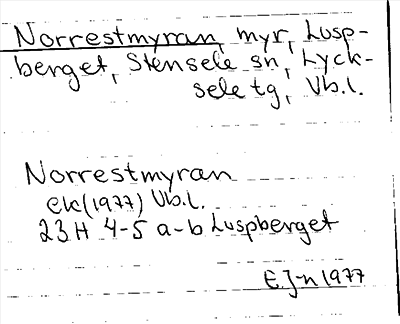 Norrestmyran, myr, Lusp-
berget, Stensele sn, Lyck-
sele tg, Vb.l.
Norrestmyran
ek (1977) Vb.l.
23H 4-5 a-b Luspberget
E.J-n 1977